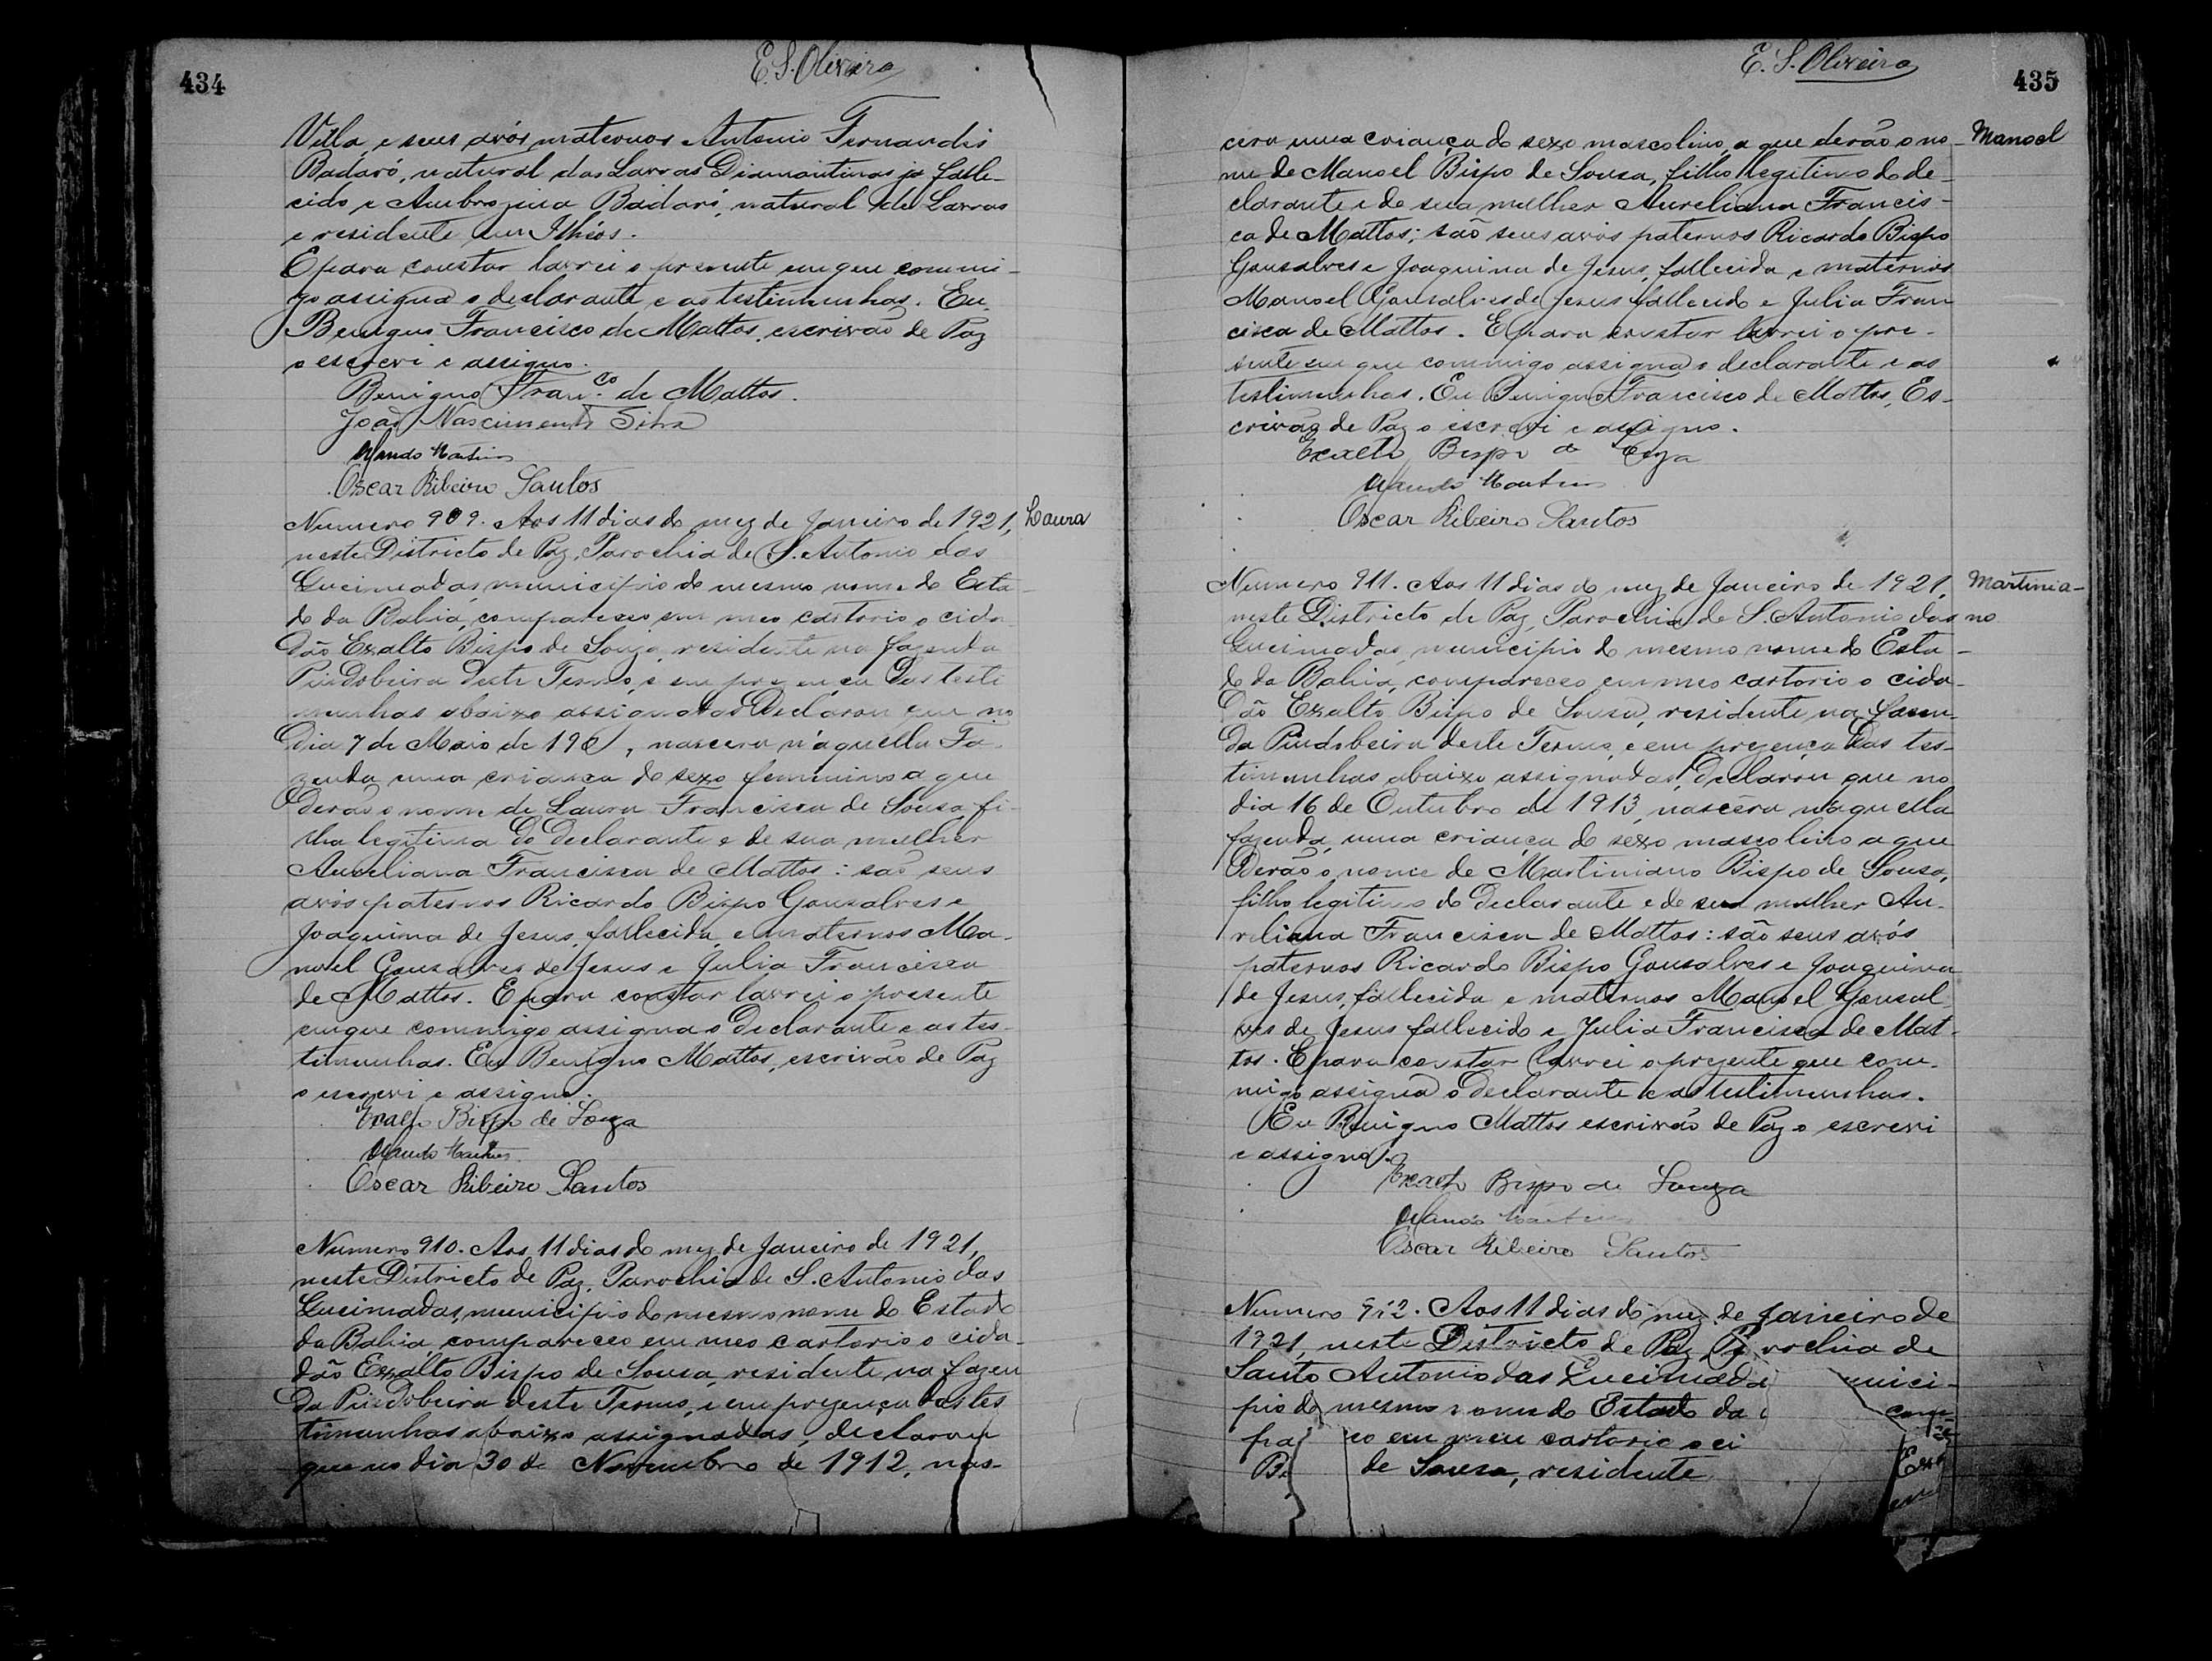 434
E. S. Oliveira
Villa, e seus avós maternos Antonio Fernandes
Badaró, natural das Lavras Diamantinas já falle-
cido e Ambrosina Badaró, natural de Lavras
e residente em Ilhéos.
E para constar lavrei o presente em que commi-
go assigna o declarante e as testimunhas. Eu
Benigno Francisco de Mattos, escrivão de Paz
o escrevi e assigno.
Benigno Fran.co de Mattos.
João Nascimento Silva
Martins
Oscar Ribeiro Santos
Numero 909. Aos 11 dias do mez de Janeiro de 1921, Laura
neste Districto de Paz, Parochia de S. Antonio das
Queimadas, municipio do mesmo nome do Esta-
do da Bahia, compareceo em meo cartorio o cida-
dão Exalto Bispo de Souza, residente na fazenda
Pindobeira deste Termo, e em prezença das testi
munhas abaixo assignadas Declarou que no
Dia 7 de Maio de 19, nascera n'aquella Fa-
zenda uma criança do sexo feminino a que
derão o nome de Laura Francisca de Sousa fi-
lha legitima do Declarante e de sua mulher
Aureliana Francisca de Mattos: são seus
avós paternos Ricardo Bispo Gonsalves e
Joaquina de Jesus, fallecida, e maternos Ma-
noel Gonsalves de Jesus e Julia Francisca
de Mattos. E para constar lavrei o presente
em que commigo assigna o Declarante e as tes-
timunhas. Eu Benigno Mattos, escrivão de Paz
o escrevi e assigno.
Exalto Bispo de Souza
Martins
Oscar Ribeiro Santos
Numero 910. Aos 11 dias do mez de Janeiro de 1921,
neste Districto de Paz, Parochia de S. Antonio das
Queimadas, municipio do mesmo nome do Estado
da Bahia, compareceo em meo cartorio o cida-
dão Exalto Bispo de Sousa, residente na fazen
da Pindobeira deste Termo, e em prezença das tes
timunhas abaixo assignadas, declarou
que no dia 30 de Novembro de 1912, nas-
E. S. Oliveira
435
cera uma criança do sexo mascolino, a que derão o no- Manoel
me de Manoel Bispo de Sousa, filho legitimo do de-
clarante e de sua mulher Aureliana Francis-
ca de Mattos; são seus avós paternos Ricardo Bispo
Gonsalves e Joaquina de Jesus, fallecida e maternos
Manoel Gonsalves de Jesus fallecido e Julia Fran
cisca de Mattos. E para constar lavrei o pre-
sente em que commigo assigna o declarante e as
testimunhas. Eu Benigno Francisco de Mattos, Es-
crivão de Paz o escrevi e assigno.
Exalto Bispo de Souza
Martins
Oscar Ribeiro Santos
Numero 911. Aos 11 dias do mez de Janeiro de 1921, Martinia-
neste Districto de Paz, Parochia de S. Antonio das no
Queimadas, municipio do mesmo nome do Esta-
do da Bahia, compareceo em meo cartorio o cida-
dão Exalto Bispo de Sousa, residente na fasen-
da Pindobeira deste Termo, e em prezença das tes-
timunhas abaixo assignadas, declarou que no
dia 16 de Outubro de 1913, nascera naquella
fazenda, uma criança do sexo mascolino a que
Derão o nome de Martiniano Bispo de Sousa,
filho legitimo do declarante e de sua mulher Au-
reliana Francisca de Mattos: são seus avós
paternos Ricardo Bispo Gonsalves e Joaquina
de Jesus, fallecida e maternos Manoel Gonsal-
ves de Jesus fallecido e Julia Francisca de Mat-
tos. E para constar lavrei o prezente que com-
migo assigna o Declarante e as testimunhas.
Eu Benigno Mattos escrivão de Paz o escrevi
e assigno.
Exalto Bispo de Souza
Martins
Oscar Ribeiro Santos
Numero 912. Aos 11 dias do mez de Janeiro de
1921, neste Districto de Paz, Parochia de
Santo Antonio das Queimada unici-
pio do mesmo nome do Estado da com-
pa ceo em meu cartorio o ci
de Sousa, residente